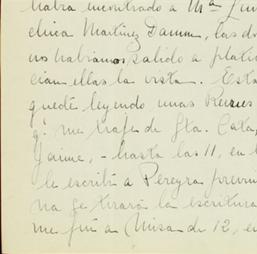 había encontrado a Mª
elvira Martínez Damm, las d
nos habíamos salido a platic
cian ellas la vista. Esta
quedé leyendo unas Revis
q! me traje de Sta. Cata
Jaime, - hasta las 11, en l
le escribí a Pereyra previn
na se tirará la escritura
me fuí a Misa de 12, e